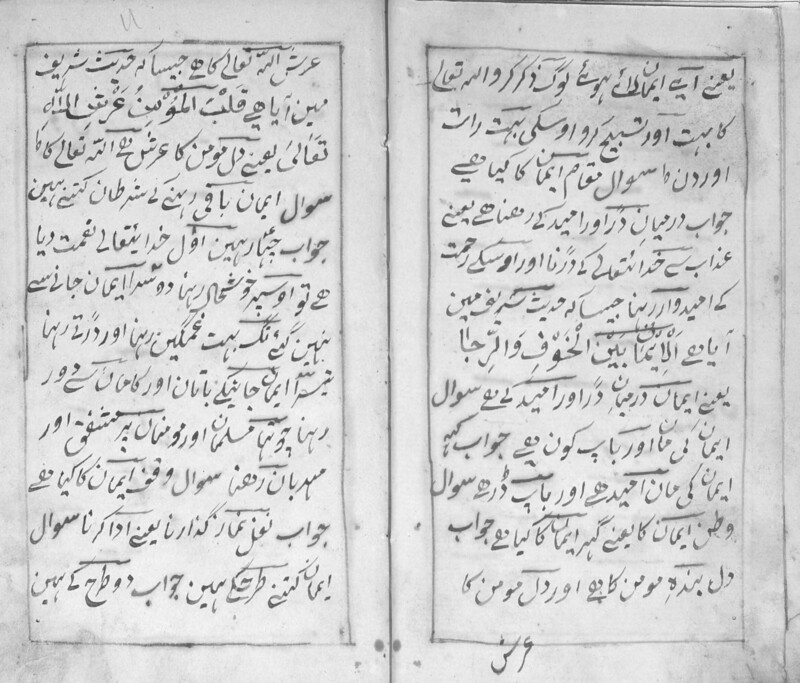 یعنے اَیے ایمان لائے ہوئے لوگ ذکر کرو اللہ تعالے
کا بہت اور تسبیح کرو اوسکی بہت رات
اور دن کا سوال مقام ایمان کا کیا ہے
جواب درمیان ڈر اور امید کے رھنا ھے یعنے
عذاب سے خدایتعالے کے ڈرنا اور اوسکے رحمت
کے امیدوار رہنا جیسا کہ حدیث شریف مین
آیا ہے اَلْاِیْمَانُ بَیْنَ الْخَوْفِ وَالرِّجَا
یعنے ایمان درمیان ڈر اور امید کے ہے سوال
ایمان کی مان اور باپ کون ہے جواب کہہ
ایمان کی مان امید ھے اور باپ ڈر ھے سوال
وطن ایمان کا یعنے گہر ایمان کا کیا ہے جواب
دل بندہ مومن کا ہے اور دل مومن کا
عرش
۱۱
عرش اللہ تعالے کا ھے جیسا کہ حدیث شریف
مین آیا ھے قَلْبُ الْمُؤْمِنِ عَرْشُ اللّٰہ
تَعَالٰی یعنے دل مومن کا عرش ہے اللہ تعالے کا
سوال ایمان باقی رہنے کے شرطان کتنے ہین
جواب چہار ہین اوّل خدایتعالے نعمت دیا
ھے تو اوسپر خوشحال رہنا دوسرا ایمان جانے سے
نہین گئے تگ بہت غمگین رہنا اور ڈرتے رہنا
تیسرا ایمان جانیکے باتان اور کامان سے دور
رہنا چوتہا مسلمان اور مومنان پر مشفق اور
مہربان رھنا سوال وقف ایمان کا کیا ھے
جواب نفل نماز گذارنا یعنے ادا کرنا سوال
ایمان کتنے طرح کے ہین جواب دو طرح کے ہین